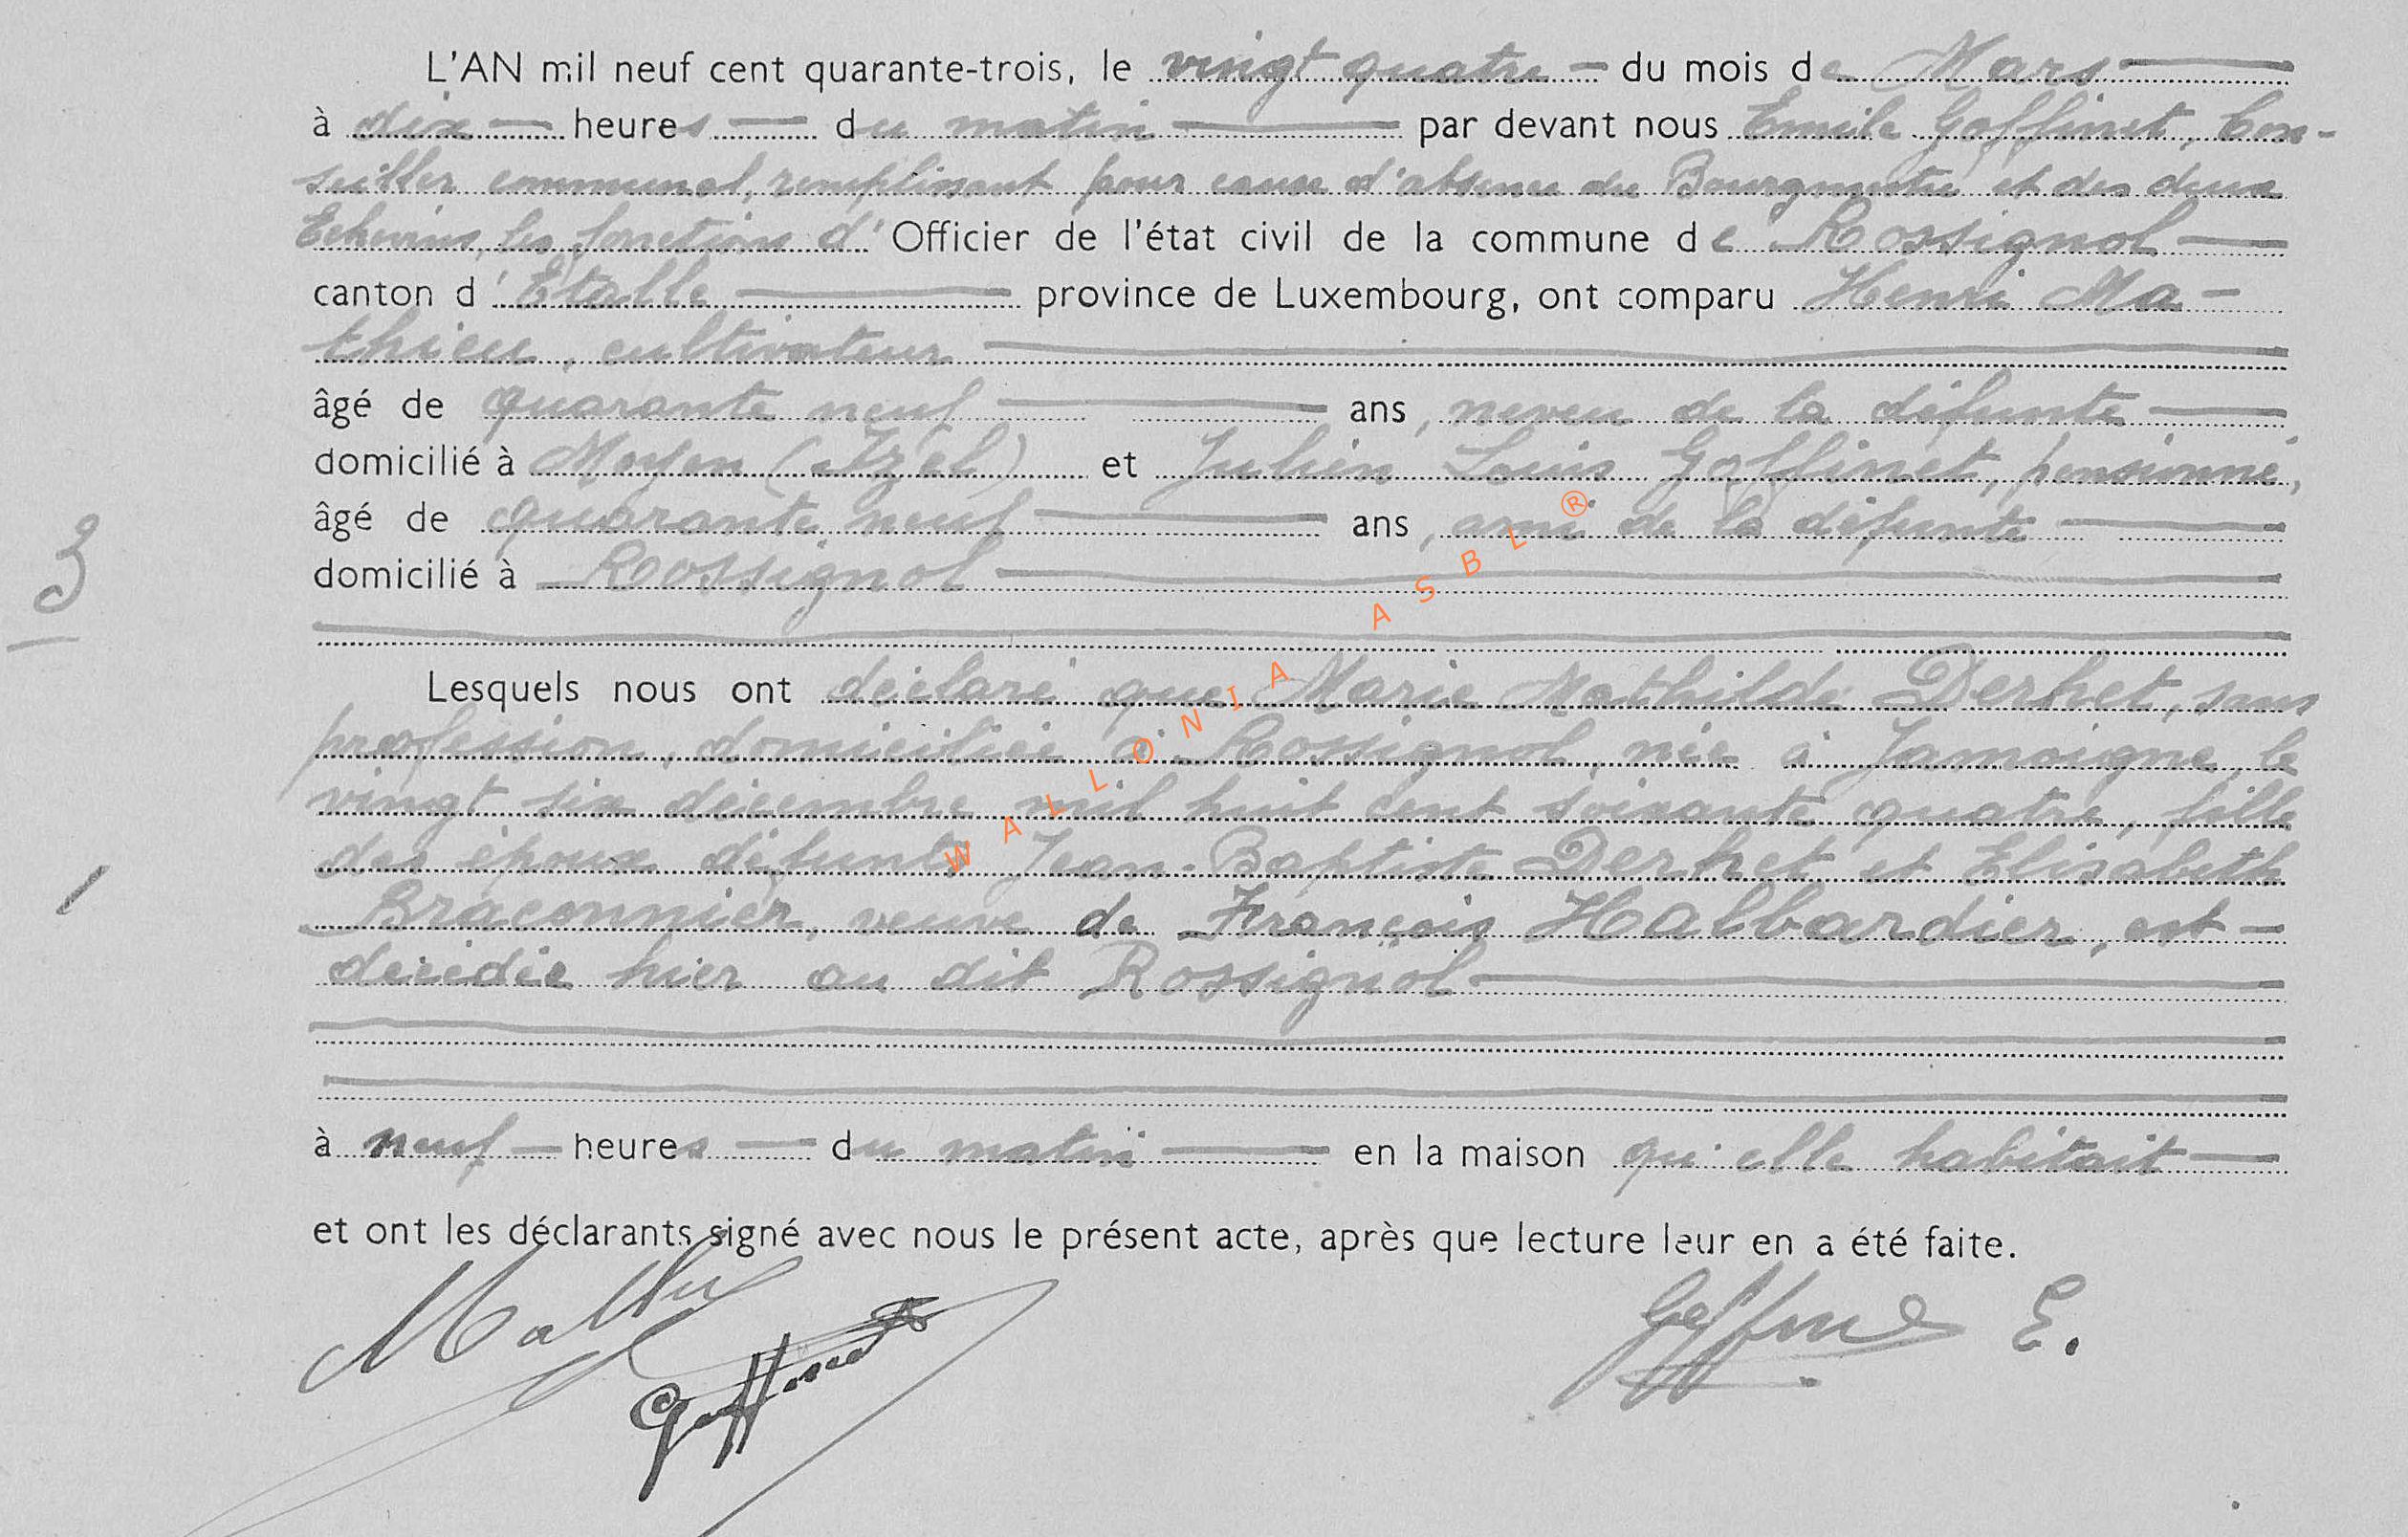 L'AN mil neuf cent quarante-trois, le vingt quatre – du mois de Mars
à dix — heures — du matin — par devant nous Emile Goffinet, Con-
seiller communal, remplissant pour cause d'absence du Bourgmestre et des deux
Echevins, les fonctions d'Officier de l'état civil de la commune de Rossignol
canton d'Etalle — province de Luxembourg, ont comparu Henri Ma-
thieu, cultivateur
âgé de quarante neuf — ans, neveu de la défunte
domicilié à Moyen (Izel) et Julien Louis Goffinet, pensionné,
âgé de quarante neuf — ans, ami de la défunte
domicilié à Rossignol
3
Lesquels nous ont déclaré que Marie Mathilde Derhet, sans
profession, domiciliée à Rossignol, née à Jamoigne, le
vingt six décembre mil huit cent soixante quatre, fille
des époux défunts Jean-Baptiste Derhet et Elisabeth
Braconnier, veuve de François Halbardier, est –
décédée hier au dit Rossignol
à neuf – heures — du matin — en la maison qu'elle habitait
et ont les déclarants signé avec nous le présent acte, après que lecture leur en a été faite.
Goffinet E.
Goffinet
WALLONIA ASBL ®